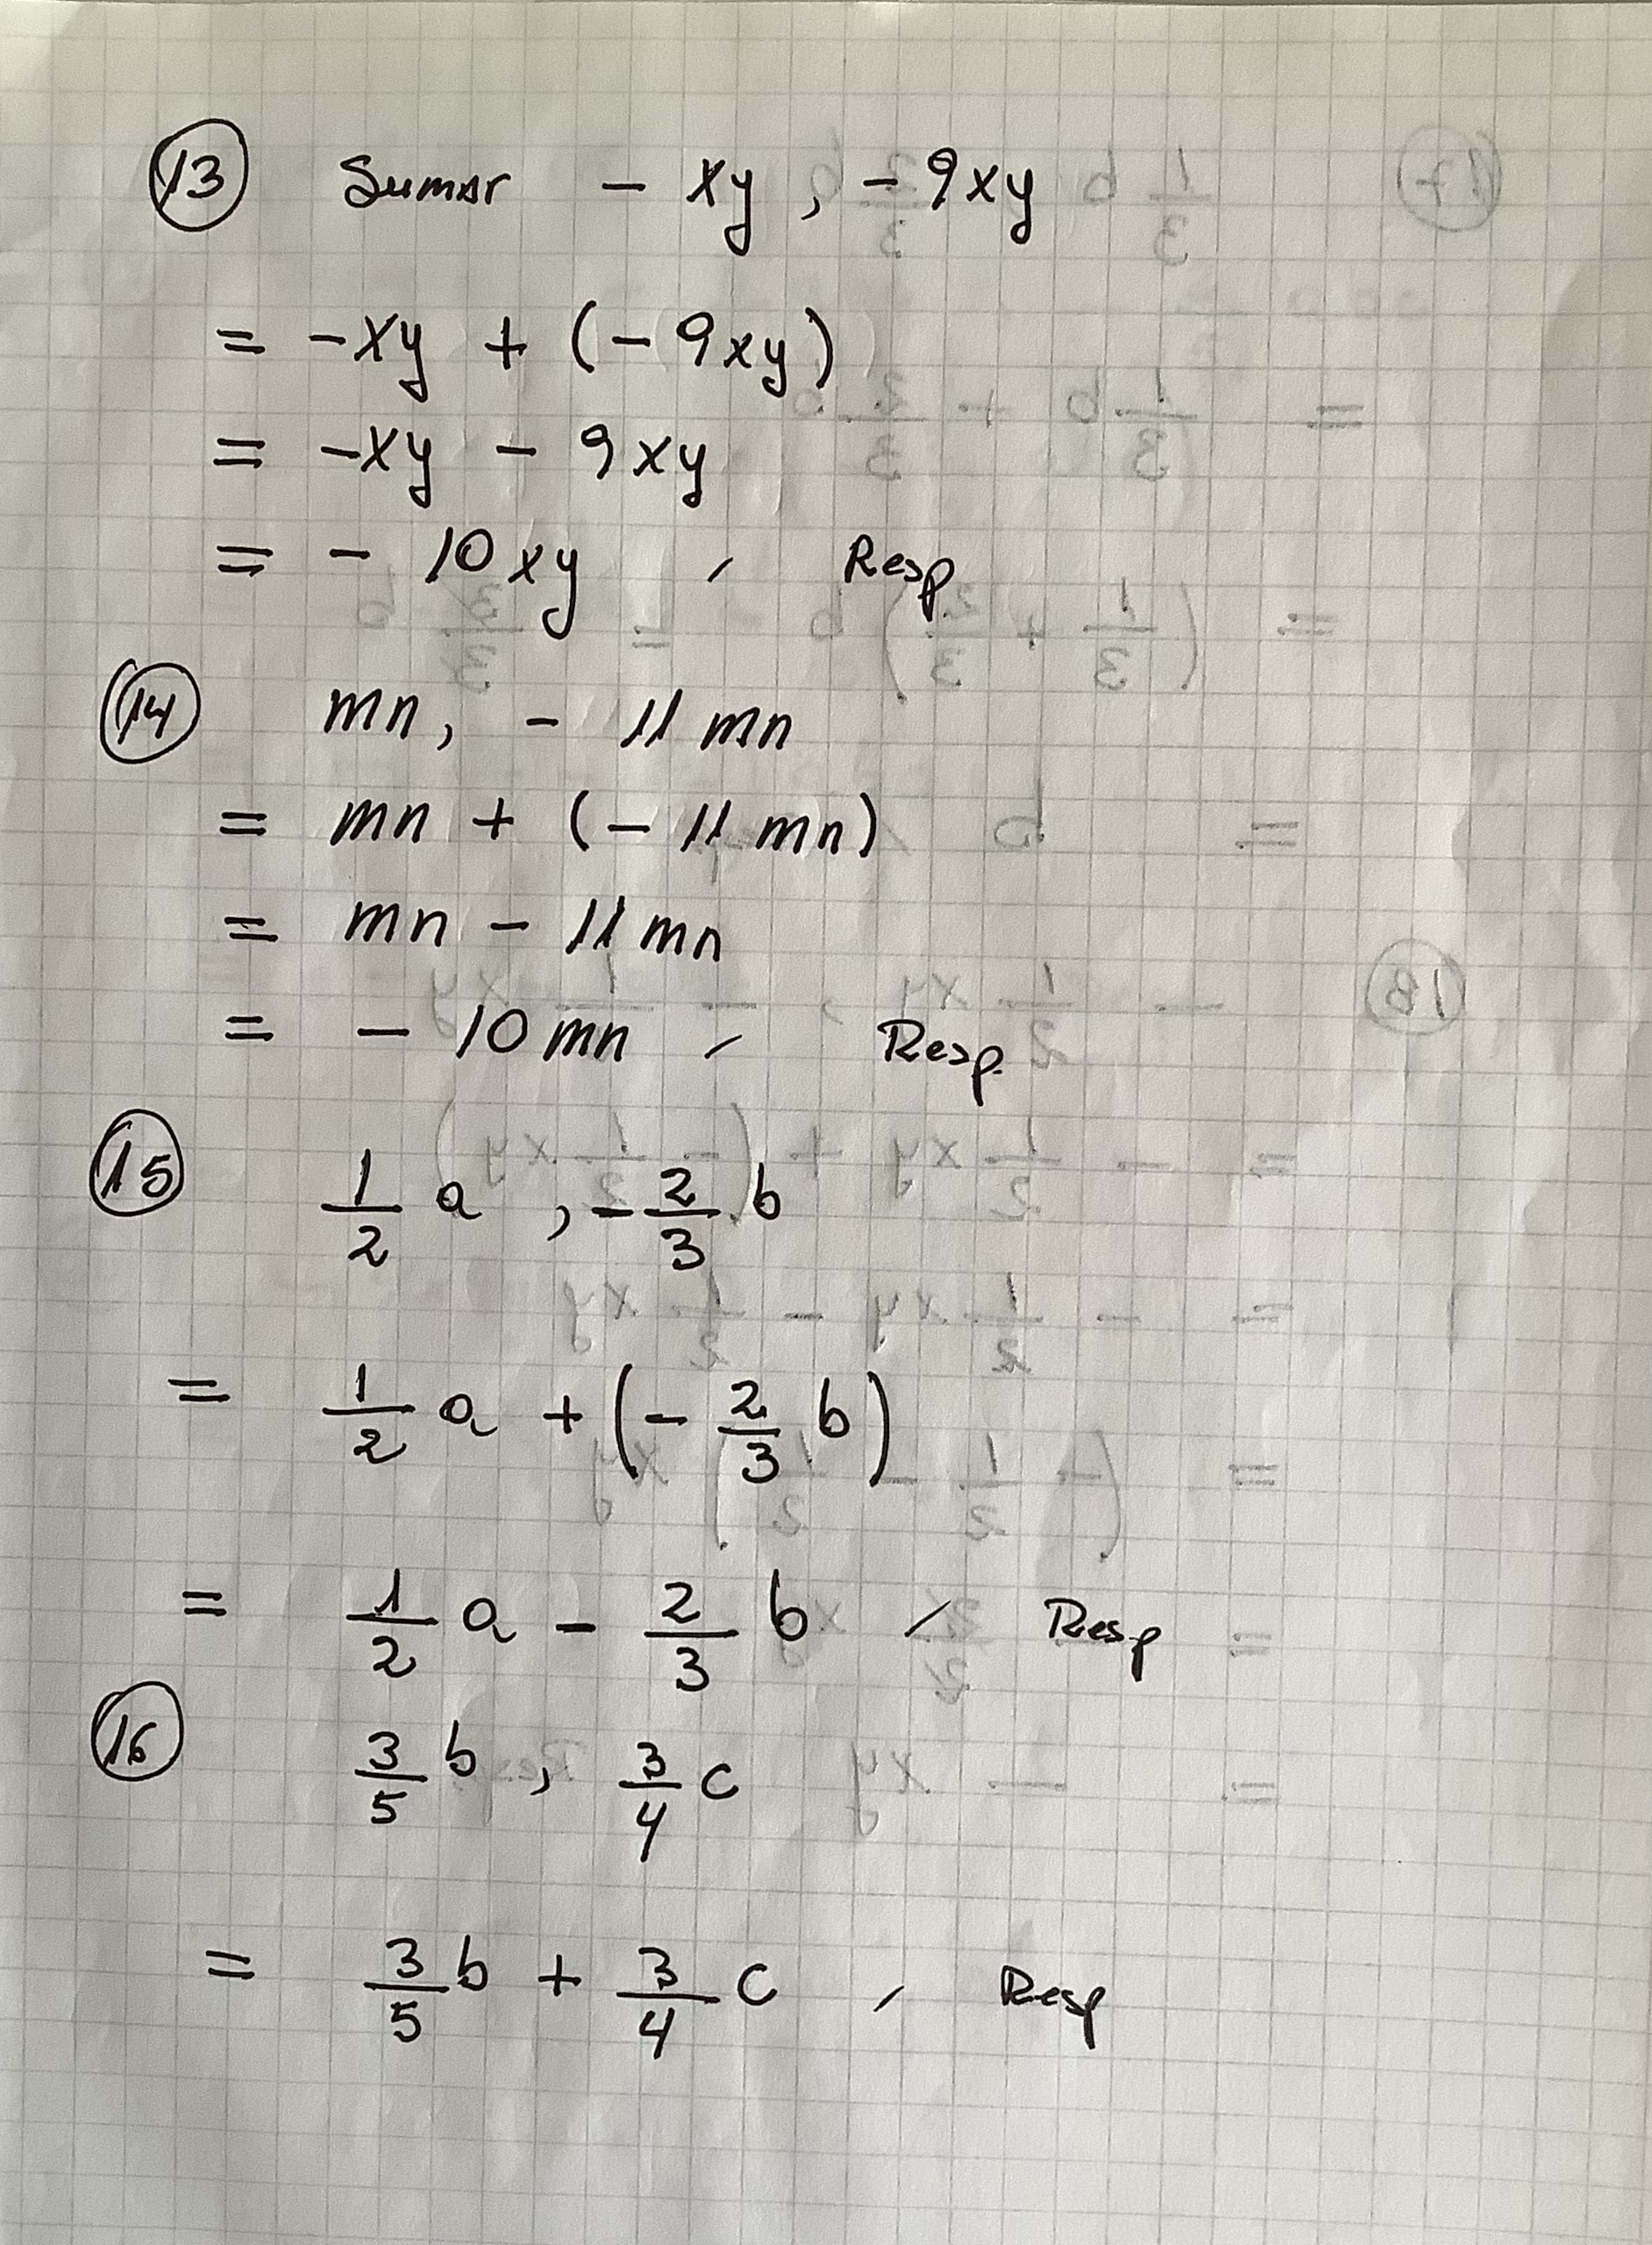 13 Sumar - xy, - 9xy
= -xy + (- 9xy)
= -xy - 9xy
= - 10xy / Resp
14 mn, - 11 mn
= mn + (- 11 mn)
= mn - 11 mn
= - 10 mn / Resp.
15 1/2 a, - 2/3 b
= 1/2 a + (- 2/3 b)
= 1/2 a - 2/3 b / Resp
16 3/5 b, 3/4 c
= 3/5 b + 3/4 c / Resp